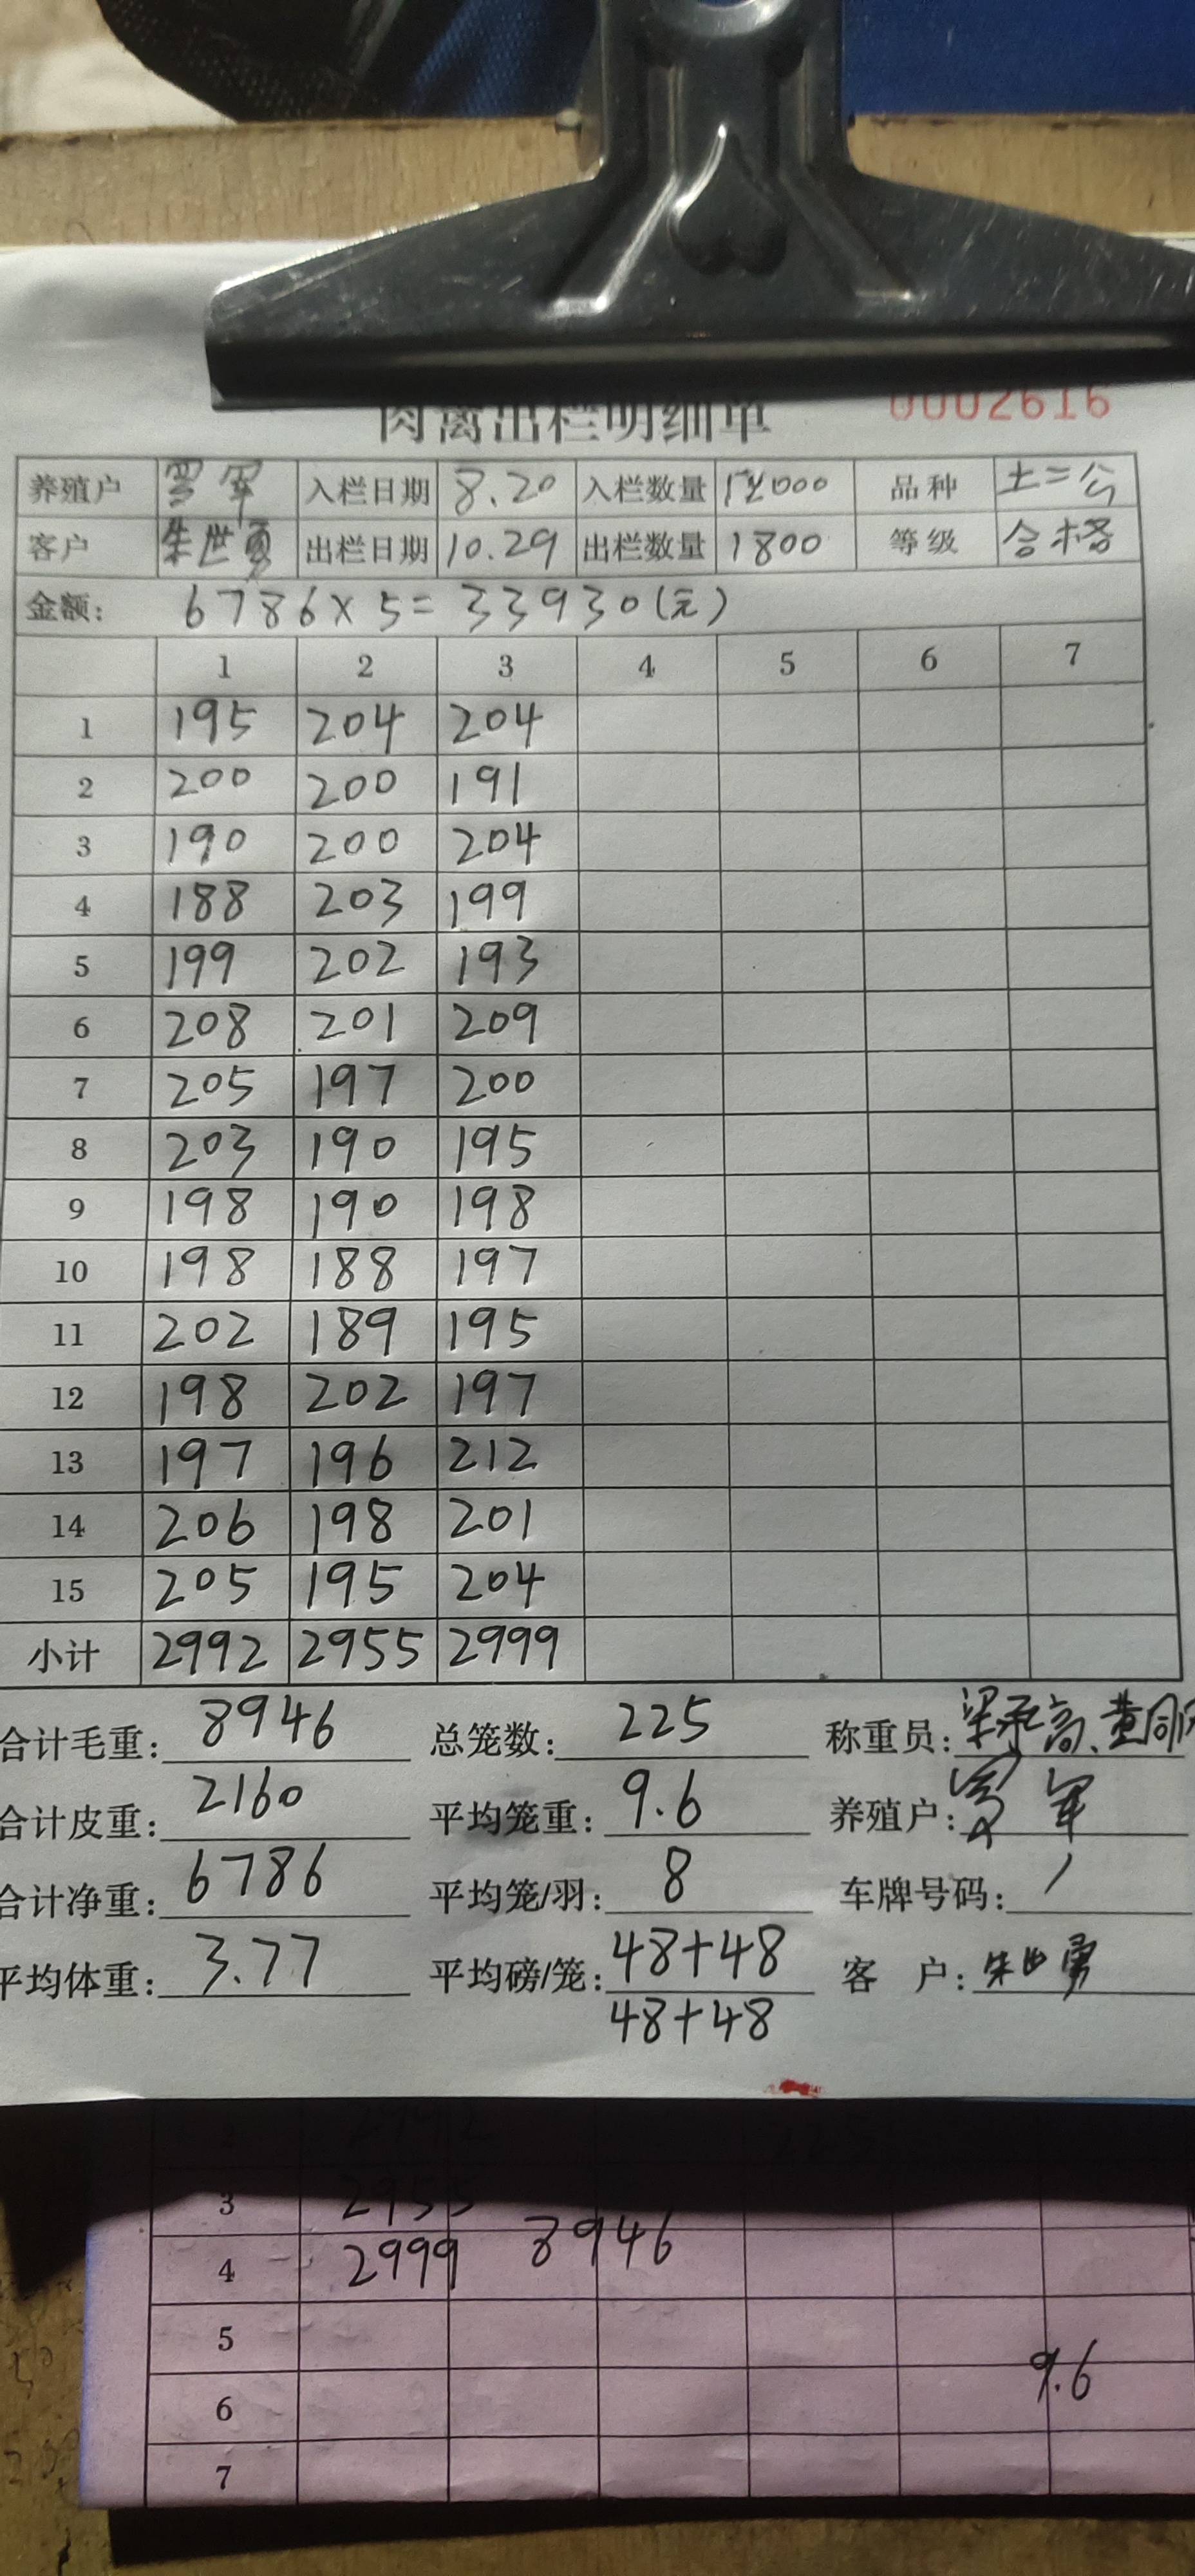 肉禽出栏明细单 0002616
养殖户 罗军 入栏日期 8.20 入栏数量 12000 品种 土二公
客户 朱世勇 出栏日期 10.29 出栏数量 1800 等级 合格
金额: 6786×5=33930(元)
1 2 3 4 5 6 7
1 195 204 204
2 200 200 191
3 190 200 204
4 188 203 199
5 199 202 193
6 208 201 209
7 205 197 200
8 203 190 195
9 198 190 198
10 198 188 197
11 202 189 195
12 198 202 197
13 197 196 212
14 206 198 201
15 205 195 204
小计 2992 2955 2999
合计毛重: 8946 总笼数: 225 称重员:
合计皮重: 2160 平均笼重: 9.6 养殖户: 罗军
合计净重: 6786 平均笼/羽: 8 车牌号码: /
平均体重: 3.77 平均磅/笼: 48+48 客户: 朱世勇
48+48
3 2955
4 2999 8946
5
6 9.6
7